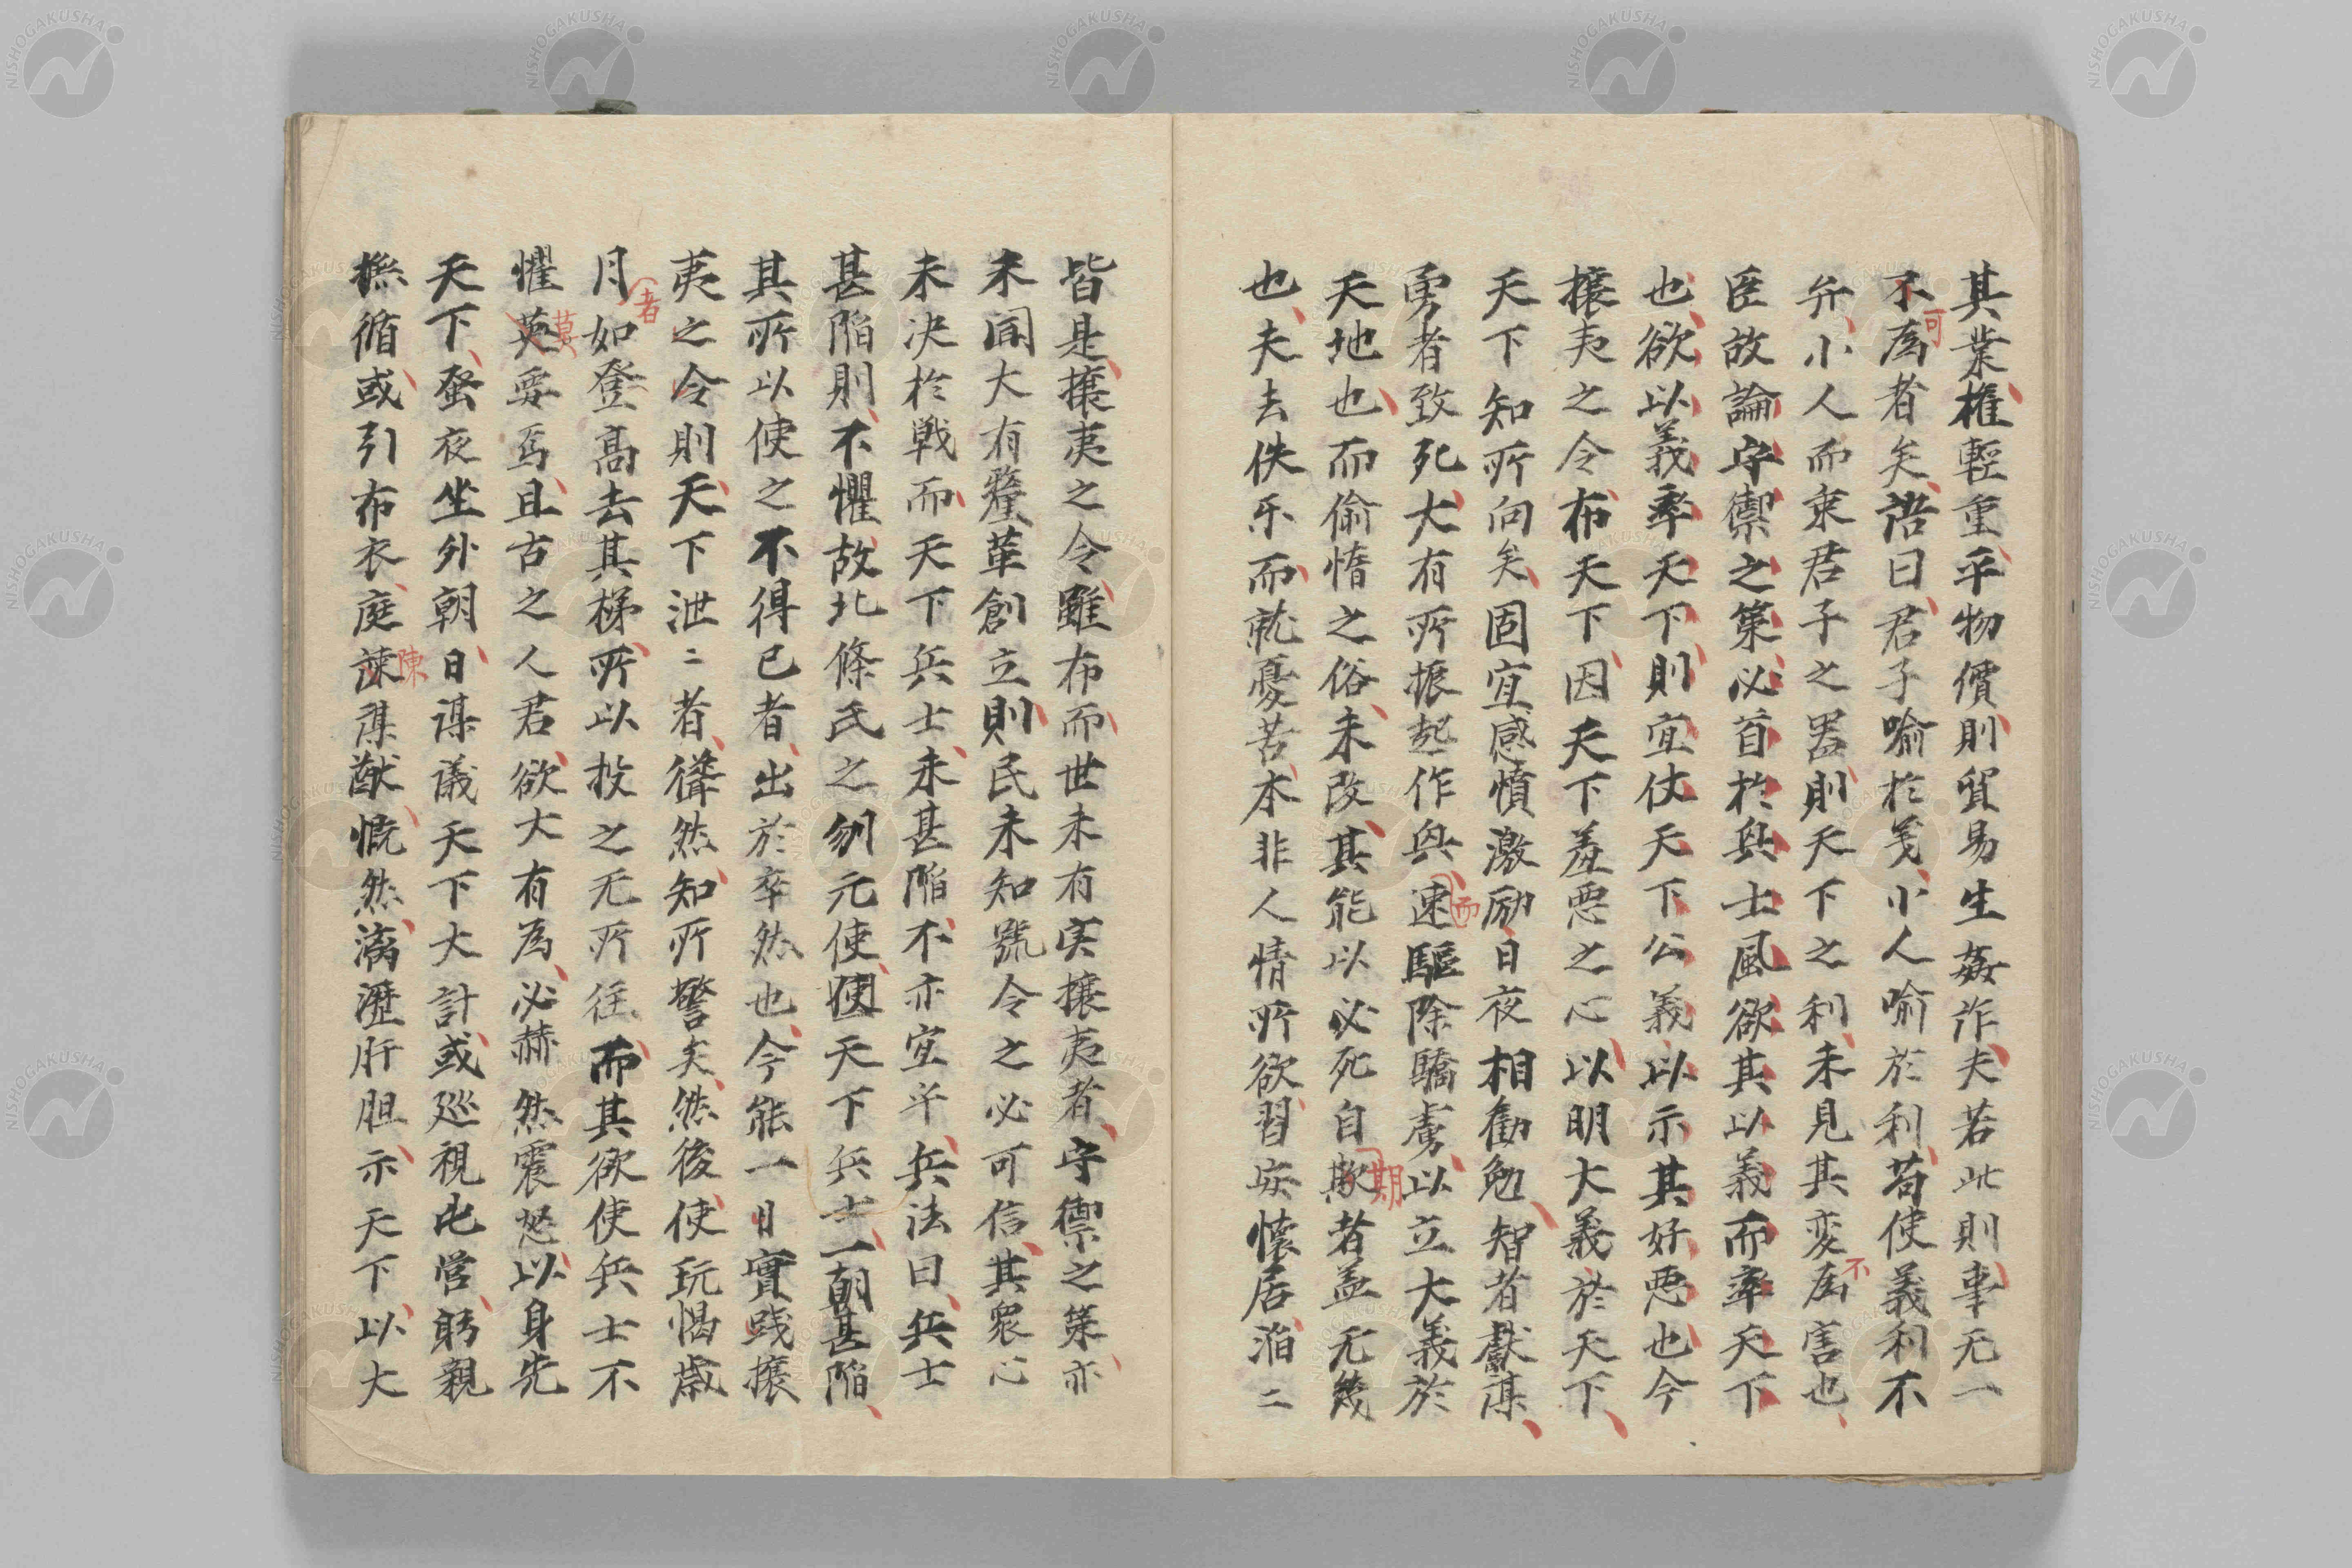 其業權輕重平物價則貿易生姦詐夫若此則事无一
不爲者矣語曰君子喻於义小人喻於利苟使義利不
可
弁小人而乘君子之器則天下之利未見其変爲害也
不
臣故論守禦之策必首於兵士風欲其以義而率天下
也欲以義率天下則宜仗天下公義以示其好悪也今
攘夷之令布天下因天下羞悪之心以明大義於天下
天下知所向矣固宜感憤激励日夜相勸勉智者獻謀
勇者致死大有所振起作興速驅除驕虜以立大義於
而
天地也而偷惰之俗未改其能以必死自欺者盖无幾
期
也夫去佚乐而就憂苦本非人情所欲習安懐居滔二
皆是攘夷之令雖布而世未有実攘夷者守禦之策亦
未聞大有釐革創立則民未知號令之必可信其衆心
未决於戦而天下兵士未甚陷不亦宜乎兵法曰兵士
甚陷則不懼故北條氏之刎元使使天下兵士一朝甚陷
其所以使之不得已者出於卒然也今能一日實踐攘
夷之令則天下泄二者聳然知所警矣然後使玩愒歳
月如登高去其梯所以投之无所往而其欲使兵士不
者
懼英要焉且古之人君欲大有爲必赫然震怒以身先
莫
天下蚤夜坐外朝日謀議天下大計或巡視屯営躬親
撫循或引布衣庭諫謀猷慨然滴瀝肝胆示天下以大
陳
NISHOGAKUSHA